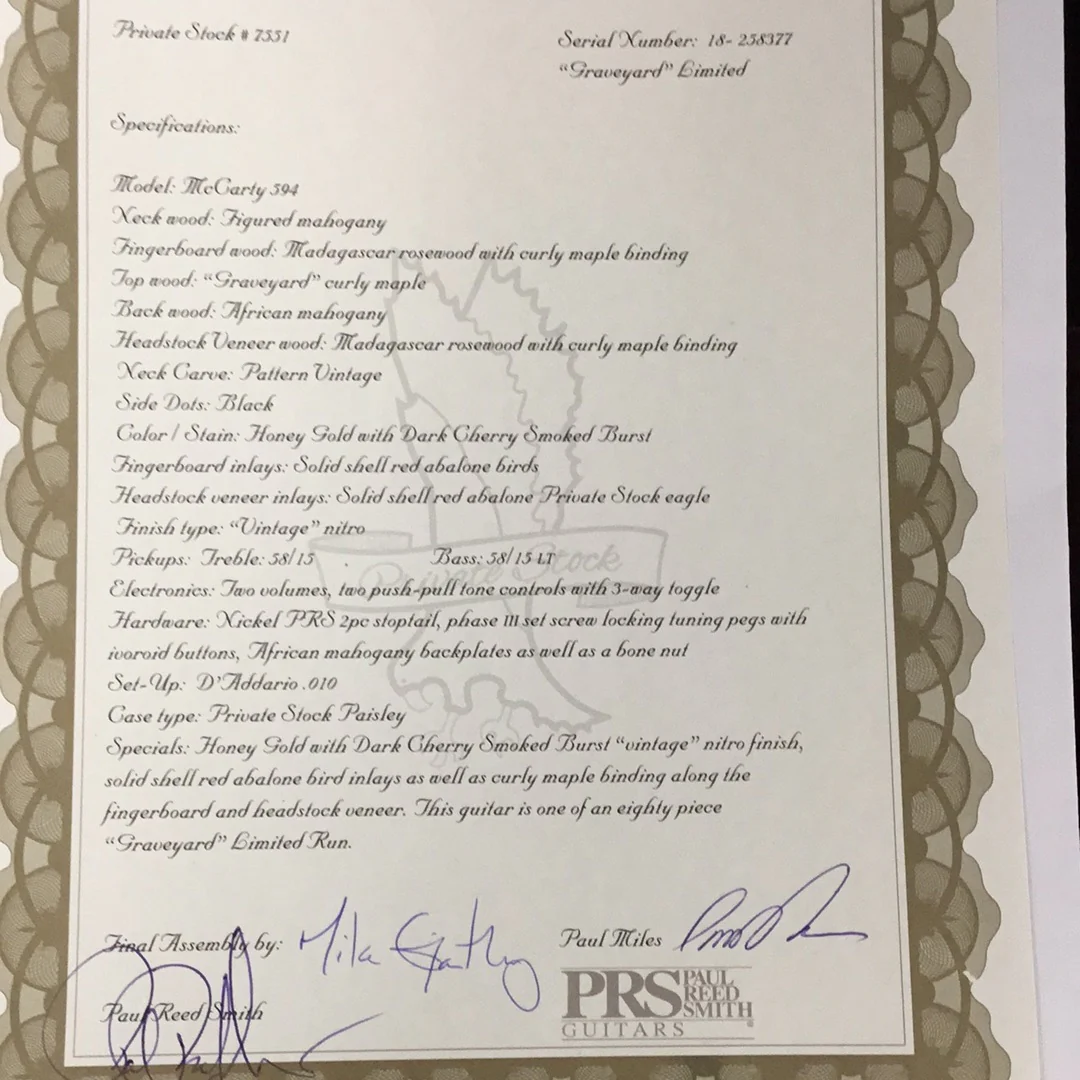 Private Stock # 7551
Serial Number: 18- 258377
"Graveyard" Limited
Specifications:
Model: McCarty 594
Neck wood: Figured mahogany
Fingerboard wood: Madagascar rosewood with curly maple binding
Top wood: "Graveyard" curly maple
Back wood: African mahogany
Headstock Veneer wood: Madagascar rosewood with curly maple binding
Neck Carve: Pattern Vintage
Side Dots: Black
Color / Stain: Honey Gold with Dark Cherry Smoked Burst
Fingerboard inlays: Solid shell red abalone birds
Headstock veneer inlays: Solid shell red abalone Private Stock eagle
Finish type: "Vintage" nitro
Pickups: Treble: 58/15 Bass: 58/15 LT
Private Stock
Electronics: Two volumes, two push-pull tone controls with 3-way toggle
Hardware: Nickel PRS 2pc stoptail, phase III set screw locking tuning pegs with
ivoroid buttons, African mahogany backplates as well as a bone nut
Set-Up: D'Addario .010
Case type: Private Stock Paisley
Specials: Honey Gold with Dark Cherry Smoked Burst "vintage" nitro finish,
solid shell red abalone bird inlays as well as curly maple binding along the
fingerboard and headstock veneer. This guitar is one of an eighty piece
"Graveyard" Limited Run.
Final Assembly by:
Paul Miles
Paul Reed Smith
PRS PAUL REED SMITH
GUITARS